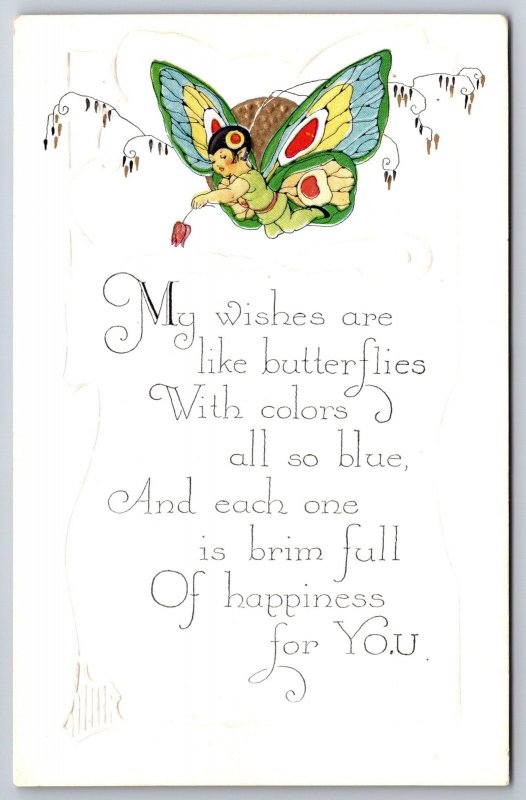 My wishes are
like butterflies
With colors
all so blue,
And each one
is brim full
Of happiness
for YOU.